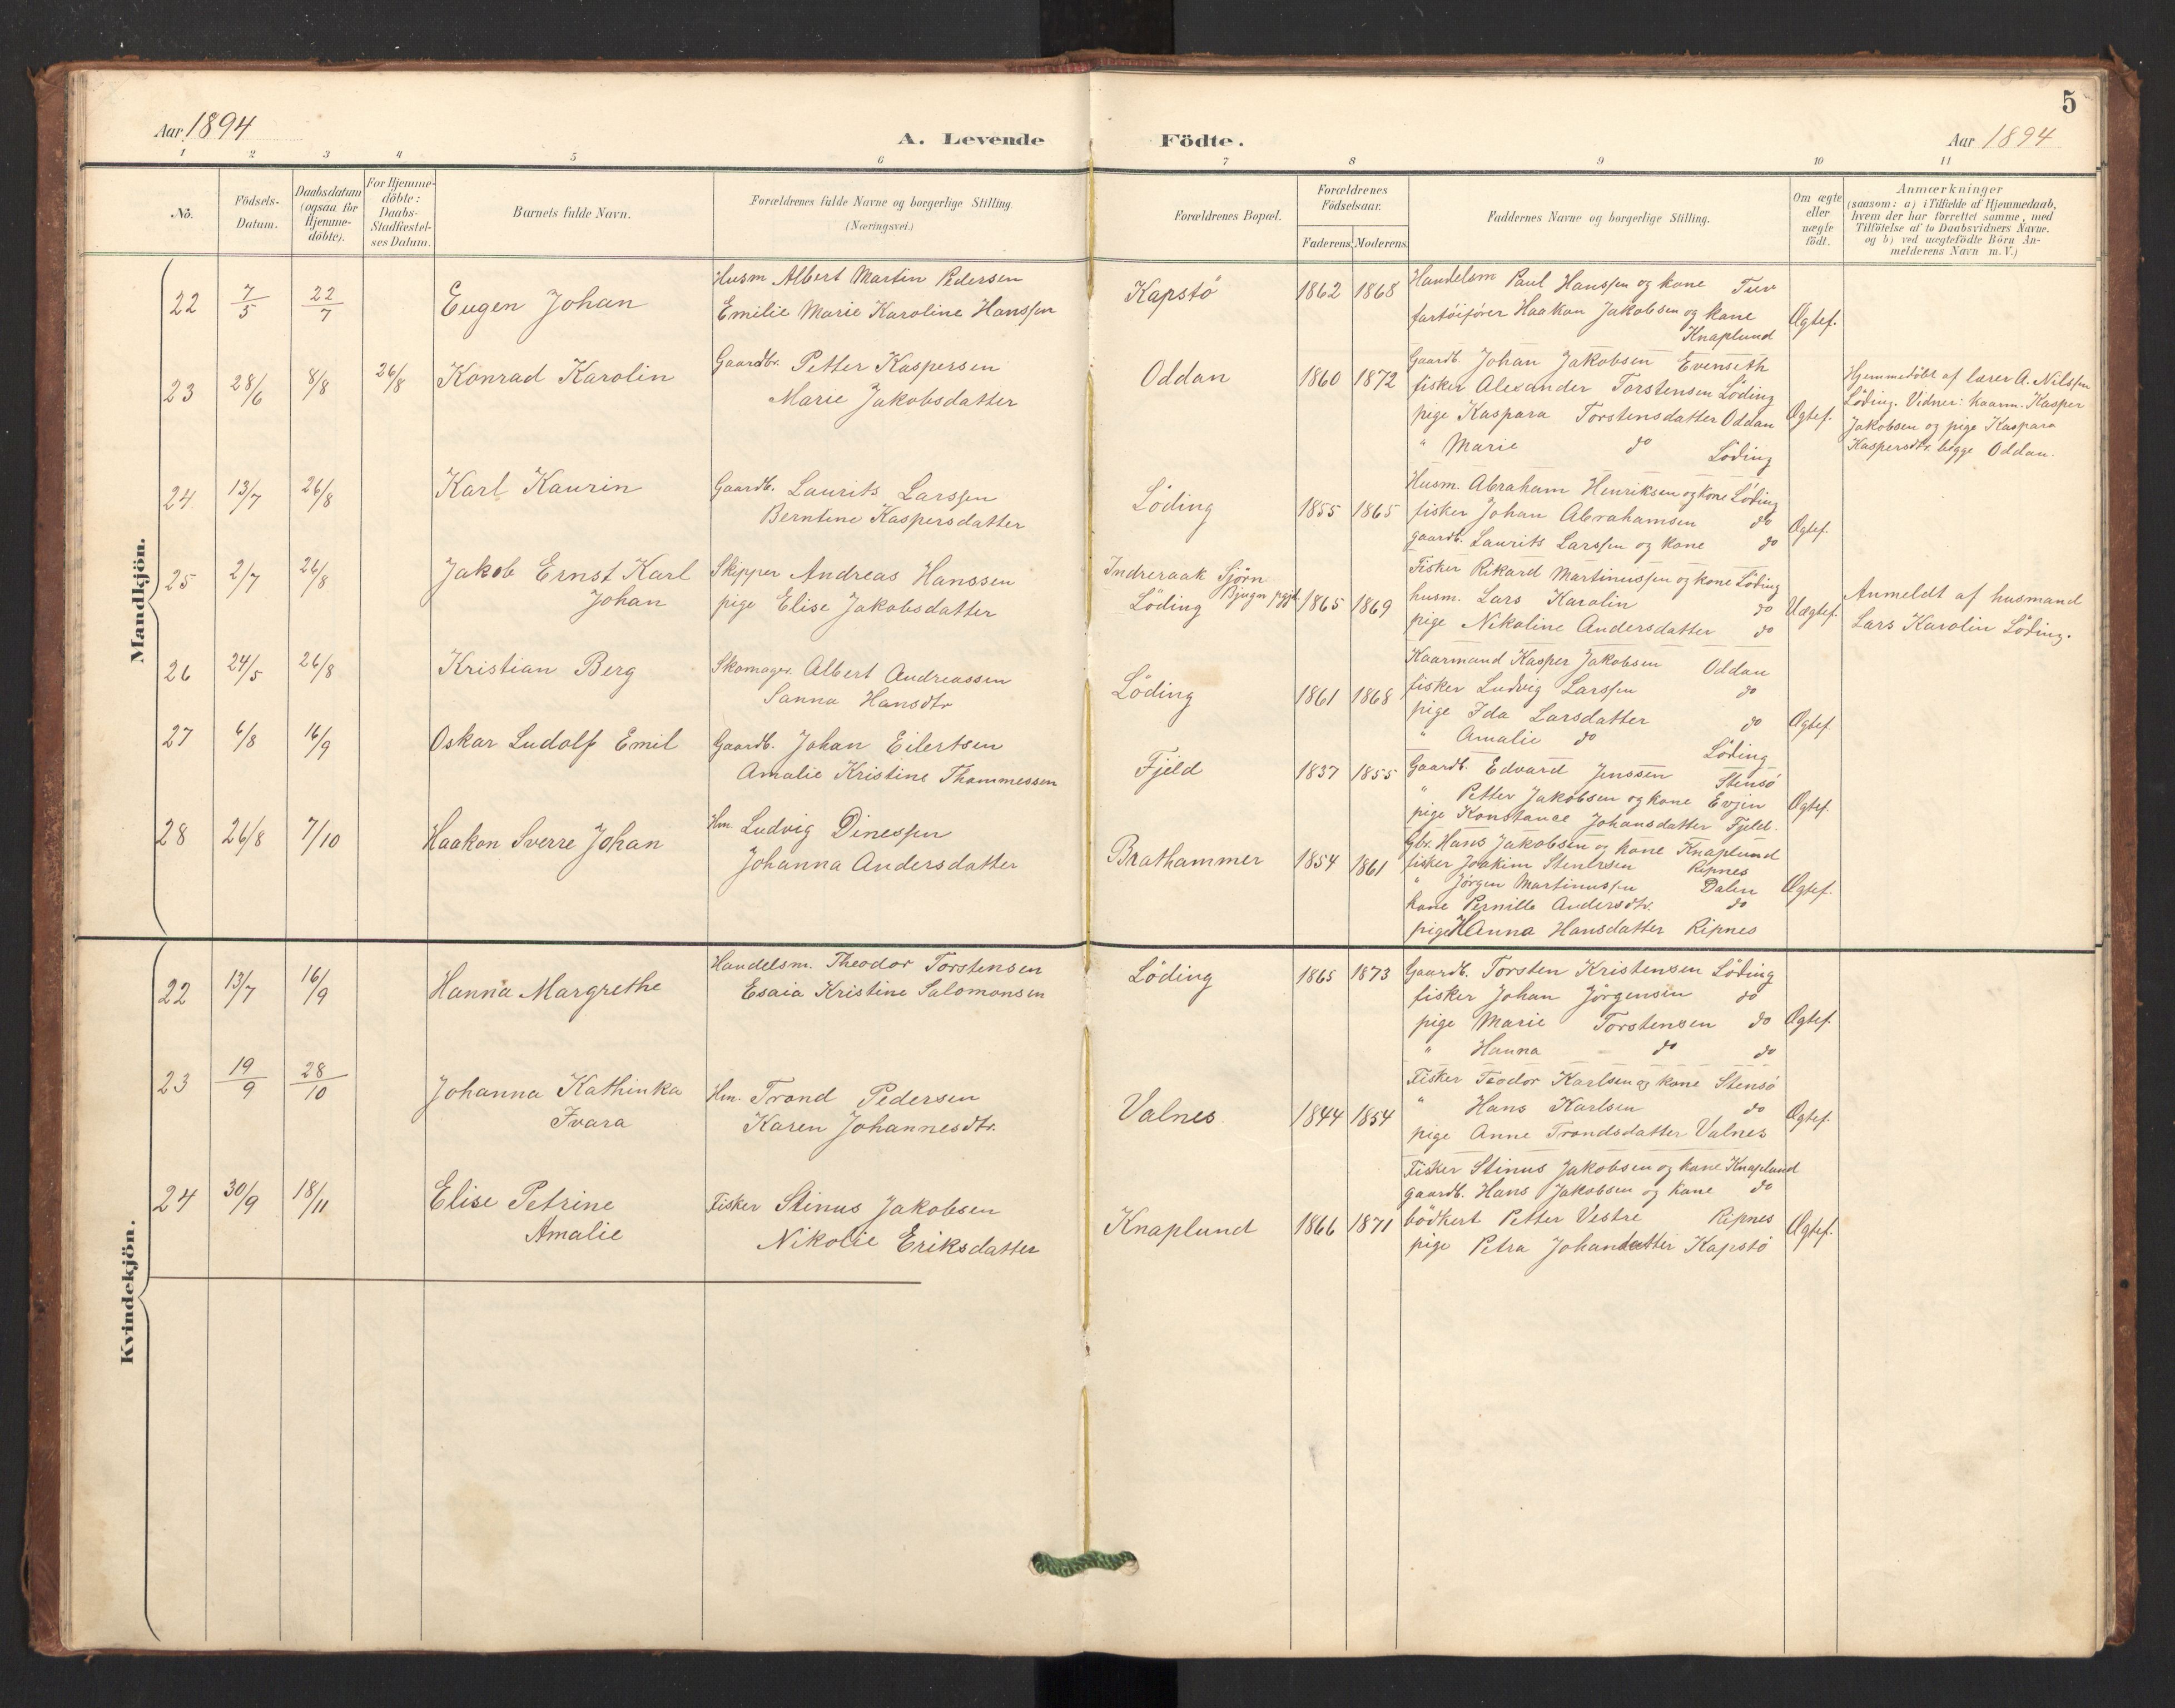 5
Aar 1894
A. Levende Födte.
Aar 1894
1 2 3 4 5 6 7 8 9 10 11
No.
Födsels-
Datum.
Daabsdatum
(ogsaa for
Hjemme-
döbte).
For Hjemme-
döbte:
Daabs-
Stadfæstel-
ses Datum.
Barnets fulde Navn.
Forældrenes fulde Navne og borgerlige Stilling.
(Næringsvei.)
Forældrenes Bopæl.
Forældrenes
Födselsaar.
Faderens. Moderens.
Faddernes Navne og borgerlige Stilling.
Om ægte
eller
uægte
födt.
Anmærkninger
(saasom: a) i Tilfælde af Hjemmedaab,
hvem der har forrettet samme, med
Tilföielse af to Daabsvidners Navne.
og b) ved uægtefödte Börn An-
melderens Navn m. V.)
Mandkjön.
22 7/5 22/7 Eugen Johan
Husm Albert Martin Pedersen
Emilie Marie Karoline Hanssen
Kapstö 1862 1868
Handelsm Paul Hanssen og kone Tuv
fartöiförer Haakon Jakobsen og kone
Knaplund
Ægtef.
23 28/6 8/8 26/8 Konrad Karolin
Gaardbr. Petter Kaspersen
Marie Jakobsdatter
Oddan 1860 1872
Gaardb. Johan Jakobsen Evenseth
fisker Alexander Torstensen Löding
pige Kaspara Torstensdatter Oddan
" Marie do Löding
Ægtef.
Hjemmedöbt af lærer A. Nilssen
Löding. Vidner: kaarm. Kasper
Jakobsen og pige Kaspara
Kaspersdtr. begge Oddan.
24 13/7 26/8 Karl Kaurin
Gaardb. Laurits Larssen
Berntine Kaspersdatter
Löding 1855 1865
Husm. Abraham Henriksen og kone Löding
fisker Johan Abrahamsen do
gaardb. Laurits Larssen og kone do
Ægtef.
25 2/7 26/8 Jakob Ernst Karl
Johan
Skipper Andreas Hanssen
pige Elise Jakobsdatter
Indreraak Sjörn
Bjugn pgjd.
Löding 1865 1869
Fisker Rikard Martinussen og kone Löding
husm. Lars Karolin do
pige Nikoline Andersdatter do
Uægtef.
Anmeldt af husmand
Lars Karolin Löding.
26 24/5 26/8 Kristian Berg
Skomager. Albert Andreassen
Sanna Hansdtr
Löding 1861 1868
Kaarmand Kasper Jakobsen Oddan
fisker Ludvig Larssen do
pige Ida Larsdatter do
" Amalie do Löding
Ægtef.
27 6/8 16/9 Oskar Ludolf Emil
Gaardb. Johan Eilertsen
Amalie Kristine Thommessen
Fjeld 1837 1855
Gaardb. Edvard Jenssen Stensö
" Petter Jakobsen og kone Evjen
pige Konstance Johansdatter Fjeld.
Ægtef.
28 26/8 7/10 Haakon Sverre Johan
Hm Ludvig Dinessen
Johanna Andersdatter
Brathammer 1854 1861
Gbr. Hans Jakobsen og kone Knaplund
fisker Joakim Stenersen Ripnes
" Jörgen Martinussen Dalen
kone Pernille Andersdtr. do
pige Hanna Hansdatter Ripnes
Ægtef.
Kvindekjön.
22 13/7 16/9 Hanna Margrethe
Handelsm. Theodor Torstensen
Esaia Kristine Salomonsen
Löding 1865 1873
Gaardb. Torsten Kristensen Löding
fisker Johan Jörgensen do
pige Marie Torstensen do
" Hanna do do
Ægtef.
23 19/9 28/10 Johanna Kathinka
Ivara
Hm. Trond Pedersen
Karen Johannesdtr.
Valnes 1844 1854
Fisker Teodor Karlsen og kone Stensö
" Hans Karlsen do
pige Anne Trondsdatter Valnes
Ægtef.
24 30/9 18/11 Elise Petrine
Amalie
Fisker Stinus Jakobsen
Nikolie Eriksdatter
Knaplund 1866 1871
Fisker Stinus Jakobsen og kone Knaplund
gaardb. Hans Jakobsen og kone do
bödkert Petter Vestre Ripnes
pige Petra Johandatter Kapstö
Ægtef.